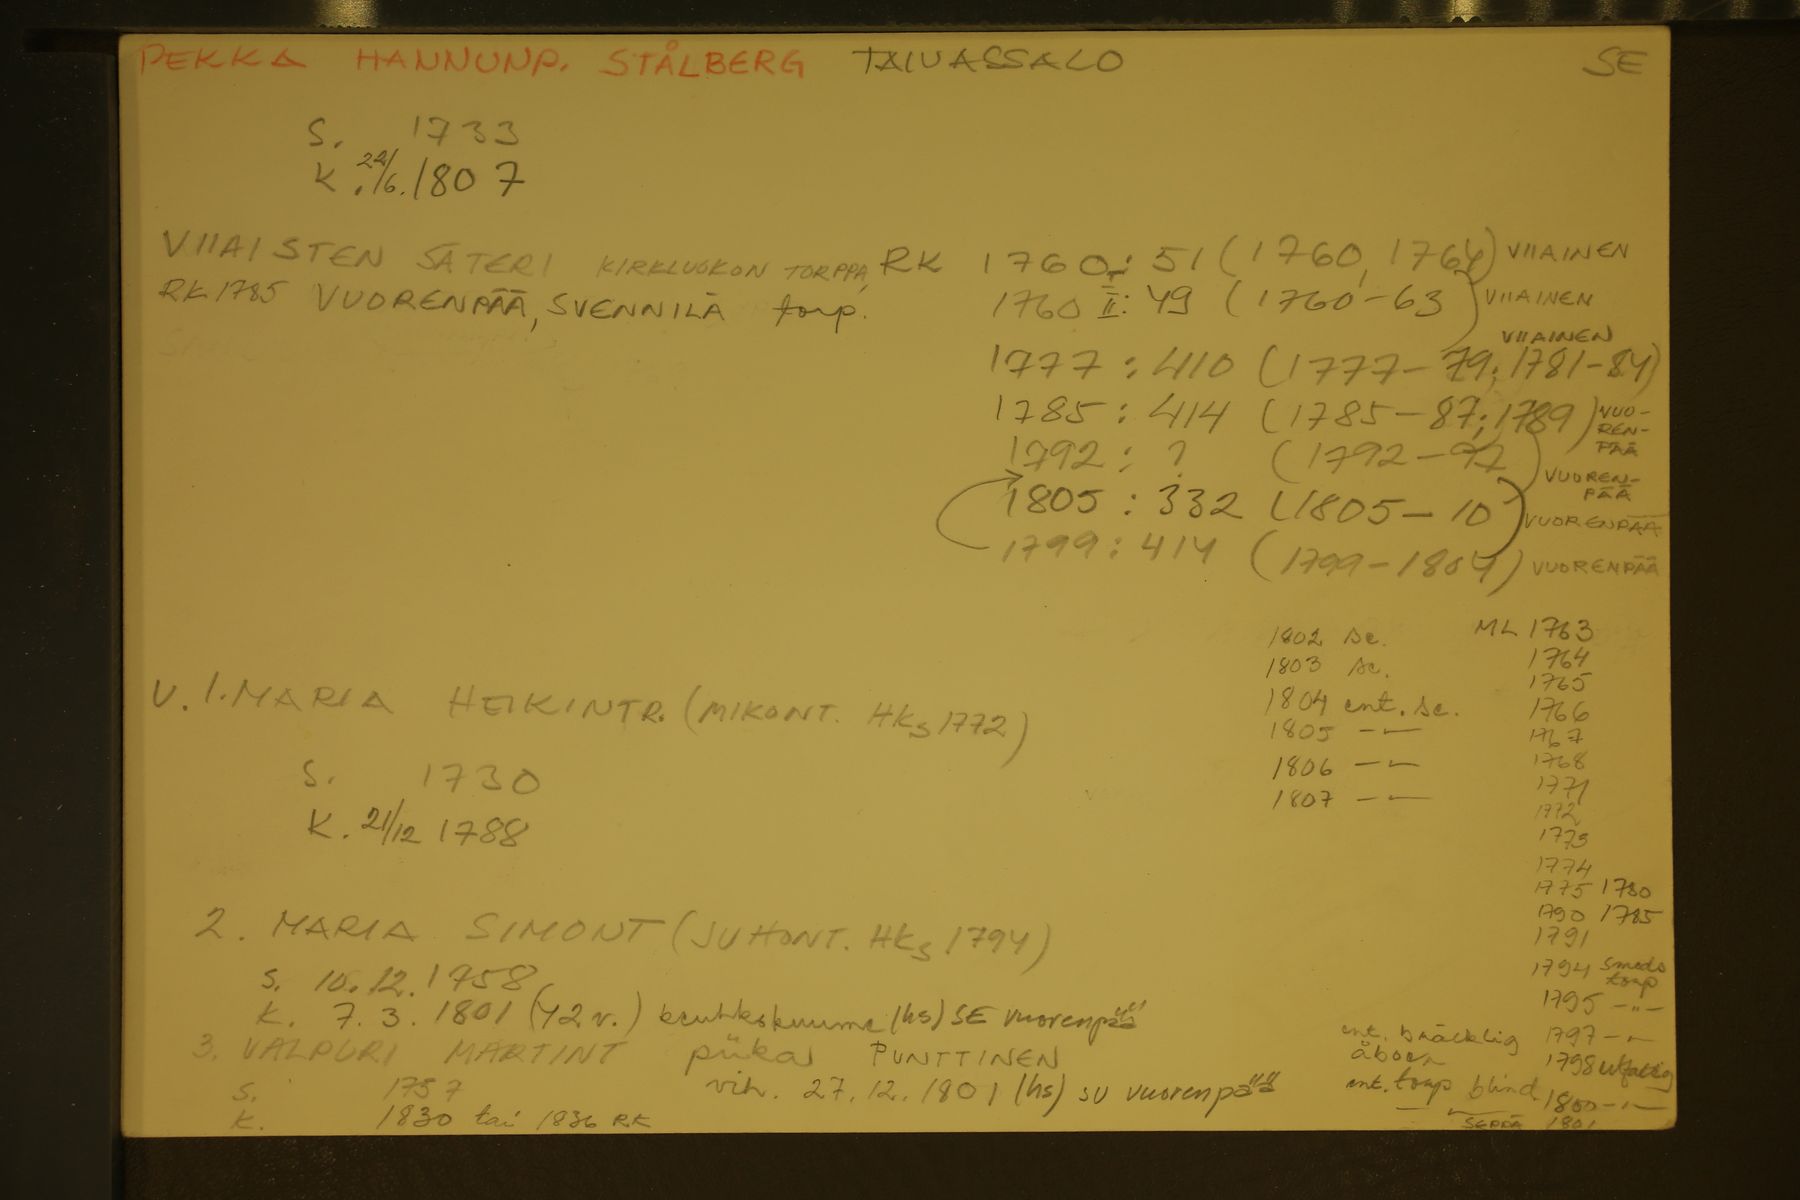 PEKKA HANNUNP. STÅLBERG TAIVASSALO SE
S. 1733
K. 22/6. 1807
VIIAISTEN SÄTERI KIRKLUOKON TORPPA, RK 1760: 51 (1760, 1764) VIIAINEN
RK 1785 VUORENPÄÄ, SVENNILÄ torp. 1760 II: 49 (1760-63) VIIAINEN
VIIAINEN
1777: 410 (1777-79; 1781-84)
1785: 414 (1785-87; 1789) VUO-
REN-
PÄÄ
1792: ? (1792-97)
VUOREN-
PÄÄ
1805: 332 (1805-10) VUORENPÄÄ
1799: 414 (1799-1804) VUORENPÄÄ
1802 sc. ML 1763
1803 sc. 1764
1765
1804 ent. sc. 1766
1805 -"- 1767
1806 -"- 1768
1807 -"- 1771
1772
1773
1774
1775 1780
1790 1785
1791
1794 smeds
torp
1795 -"-
ent. bräcklig 1797 -"-
åboen 1798 utfattig
ent. torp blind 1800 -"-
-"- SEPPÄ 1801
V. 1. MARIA HEIKINTR. (MIKONT. HKS 1772)
S. 1730
K. 21/12 1788
2. MARIA SIMONT (JUHONT. HKS 1794)
S. 10.12.1758
K. 7.3.1801 (42 v.) keuhkokuume (hs) SE Vuorenpää
3. VALPURI MARTINT piika PUNTTINEN
S. 1757 vih. 27.12.1801 (hs) SU Vuorenpää
K. 1830 tai 1836 RK